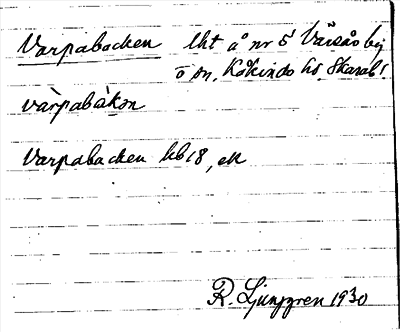 Varpabacken lht å nr 5 Väsås by
o sn, Kåkinds hd, Skarab l.
vàrpabákən
Varpabacken kb 18, ek
R. Ljunggren 1930